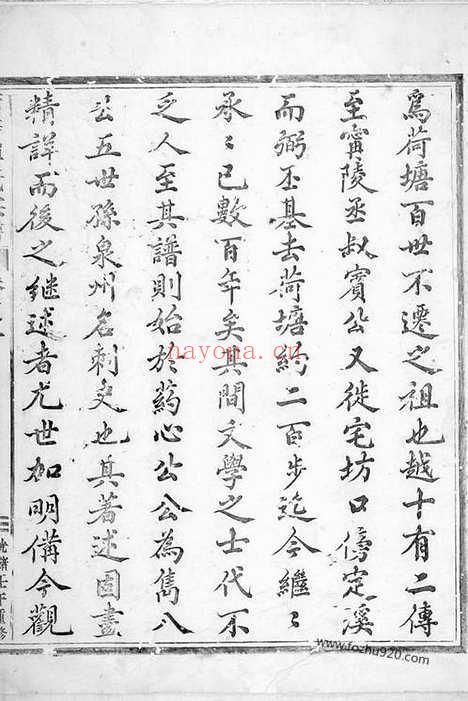 爲荷塘百世不遷之祖也越十有二傳
至甯陵丞叔賓公又徙宅坊口傍定溪
而弼丕基去荷塘約二百步迄今繼〻
承〻已數百年矣其間文學之士代不
乏人至其譜則始於葯心公公為雋八
公五世孫泉州名刺史也其著述固盡
精詳而後之継述者尤世加明備今觀
光緒壬午重修
hayona.cn
www.fozhu920.com